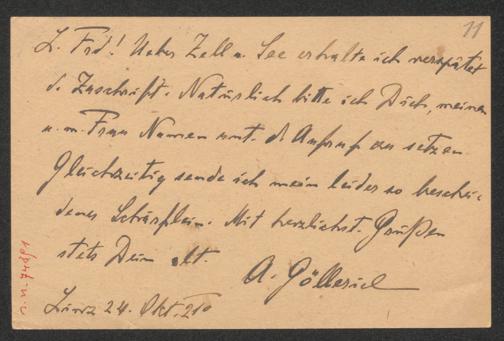 11
L. Frd! Ueber Zell a. See erhalte ich verspätet
d. Zuschrift. Natürlich bitte ich Dich, meinen
u. m. Frau Namen unt. d. Aufruf zu setzen.
Gleichzeitig sende ich mein leider so beschei-
denes Schärflein. Mit herzlichst. Grüßen
stets Dein alt.
A. Göllerich
Linz 24. Okt. 21